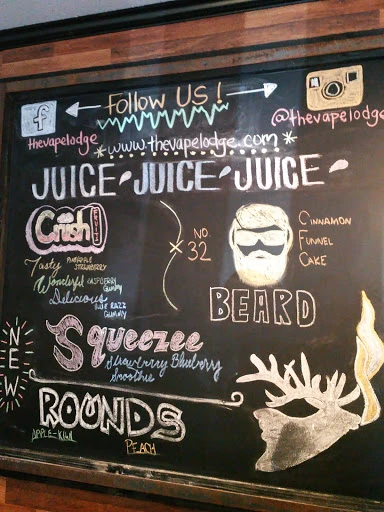 Follow US!
f
thevapelodge
@thevapelodge
www.thevapelodge.com
JUICE-JUICE-JUICE-
Crush
FRUIT
Tasty PINEAPPLE STRAWBERRY
Wonderful RASPBERRY Gummy
Delicious BLUE RAZZ GUMMY
NO. 32
CINNAMON
FUNNEL
CAKE
BEARD
Squeezee
Strawberry Blueberry
Smoothie
NEW
ROUNDS
APPLE-KIWI
PEACH